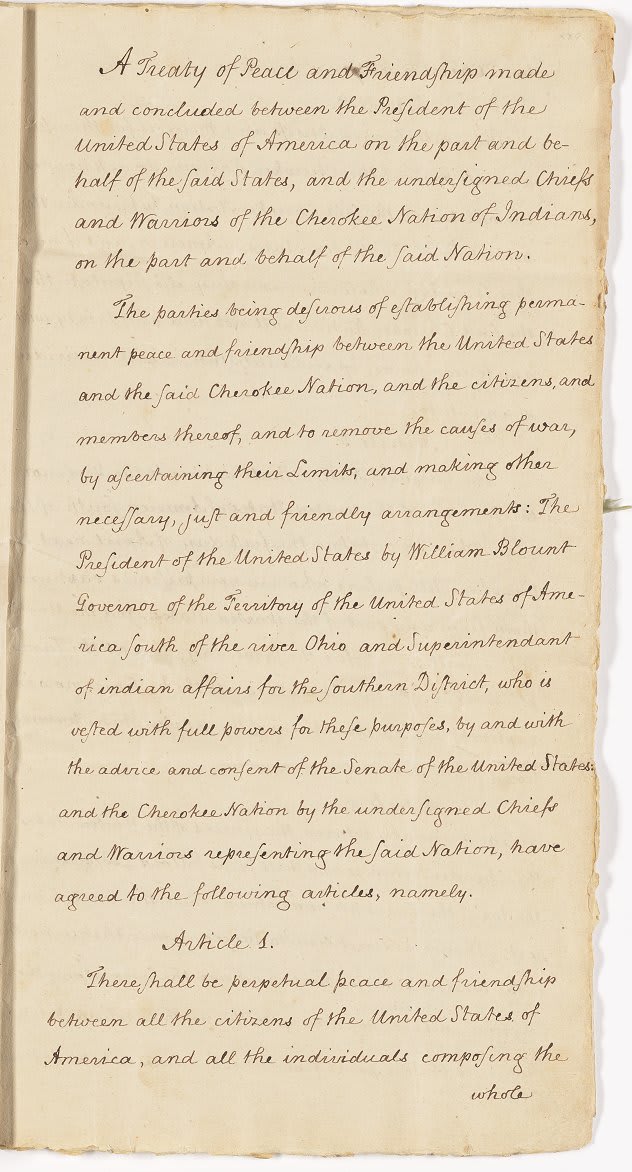 A Treaty of Peace and Friendship made
and concluded between the President of the
United States of America on the part and be-
half of the said States, and the undersigned Chiefs
and Warriors of the Cherokee Nation of Indians,
on the part and behalf of the said Nation.
The parties being desirous of establishing perma-
nent peace and friendship between the United States
and the said Cherokee Nation, and the citizens, and
members thereof, and to remove the causes of war,
by ascertaining their Limits, and making other
necessary, just and friendly arrangements: The
President of the United States by William Blount
Governor of the Territory of the United States of Ame-
rica south of the river Ohio and Superintendant
of indian affairs for the southern District, who is
vested with full powers for these purposes, by and with
the advice and consent of the Senate of the United States:
and the Cherokee Nation by the undersigned Chiefs
and Warriors representing the said Nation, have
agreed to the following articles, namely.
Article 1.
There shall be perpetual peace and friendship
between all the citizens of the United States of
America, and all the individuals composing the
whole